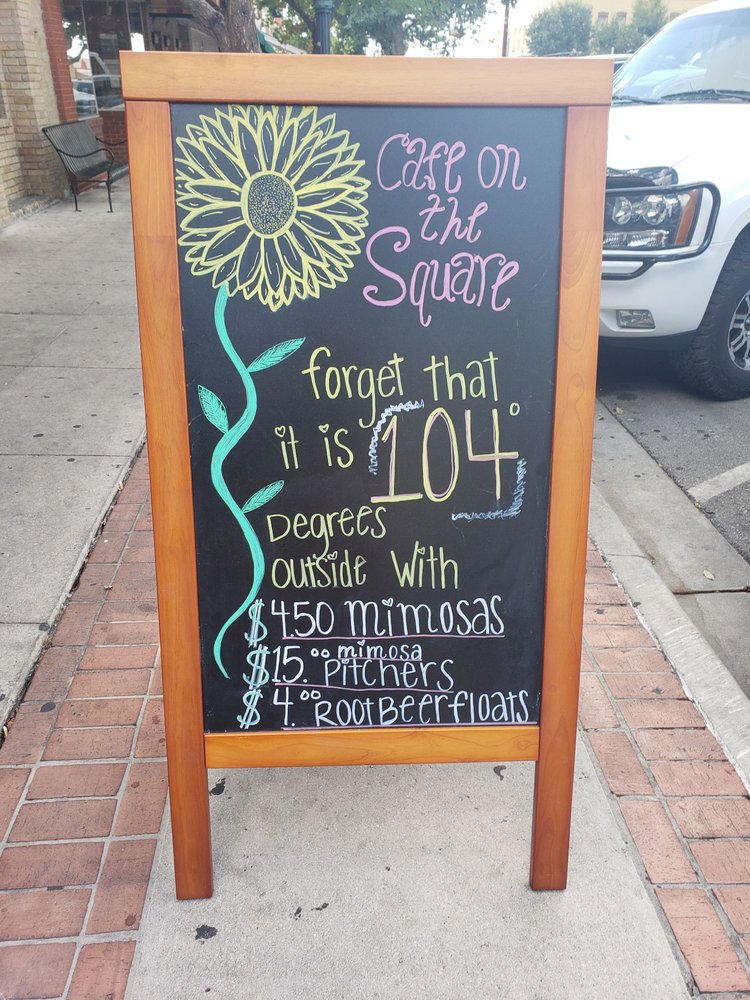 Cafe on
the
Square
forget that
it is 104°
Degrees
outside with
$4.50 mimosas
$15.⁰⁰ mimosa
Pitchers
$4.⁰⁰ Root Beer floats